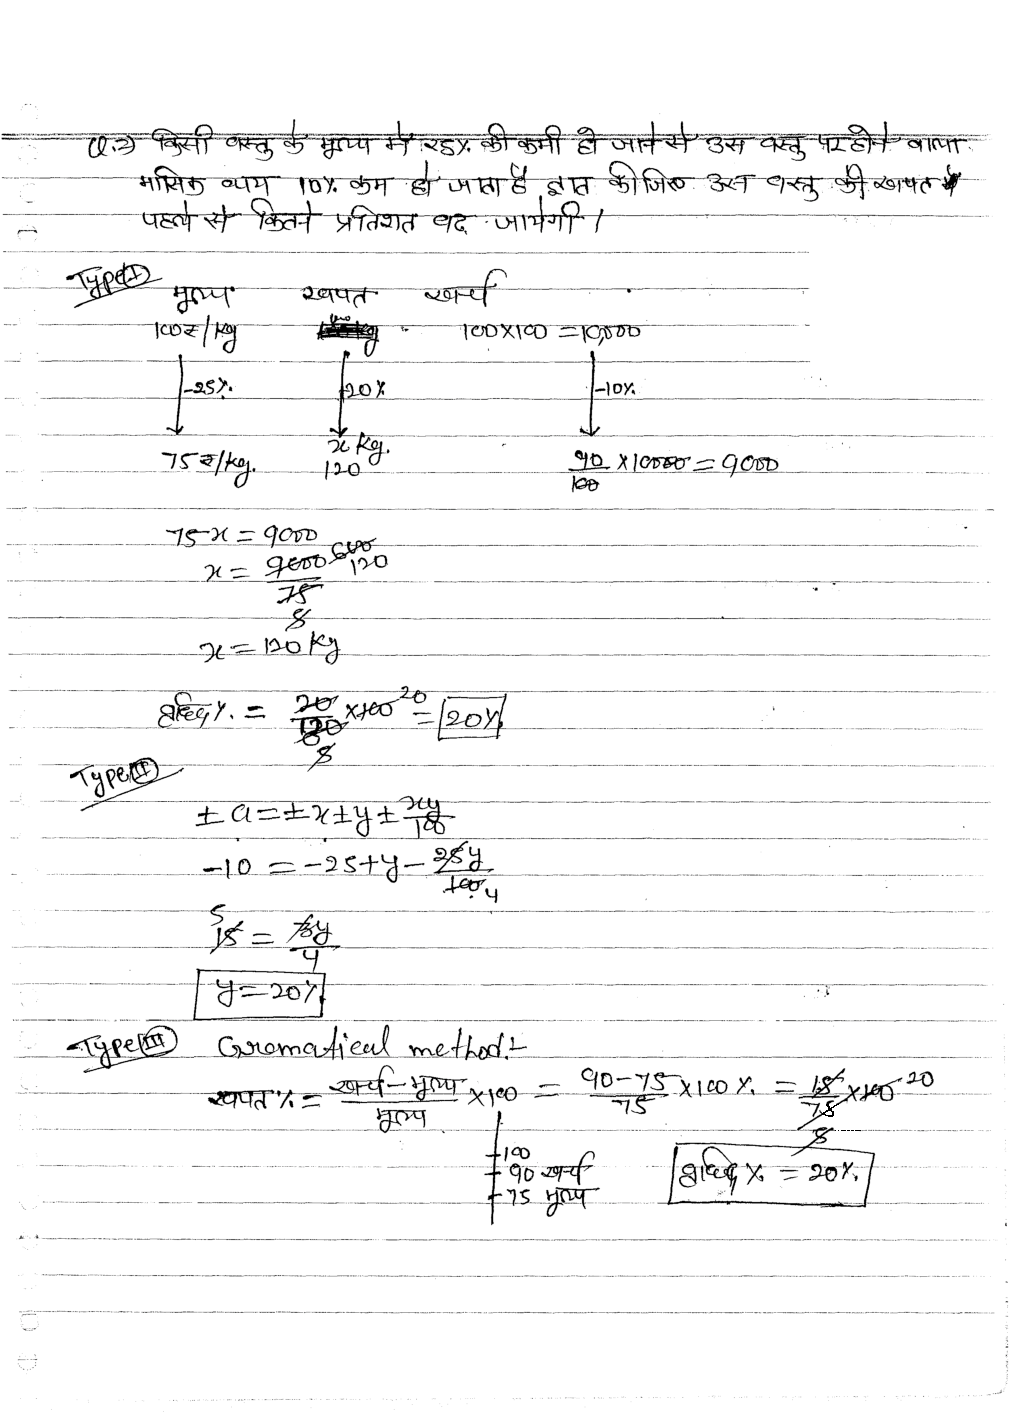 Q.2) किसी वस्तु के मूल्य में 25% की कमी हो जाने से उस वस्तु पर होने वाला
मासिक व्यय 10% कम हो जाता है ज्ञात कीजिए उस वस्तु की खपत
पहले से कितने प्रतिशत बढ़ जायेगी।
Type I
मूल्य खपत खर्च
100₹/kg 100 kg 100×100 = 10,000
-25% 20% -10%
75₹/kg. x kg. 90/100 ×10000 = 9000
120
75x = 9000
x = 9000/75 600 120
5
x = 120 kg
वृद्धि%. = 20/100 ×100 20 = 20%
5
Type II
± a = ± x ± y ± xy/100
-10 = -25+y - 25y/100 4
5
15 = 3y/4
y = 20%
Type III Gromatical method:-
खपत % = खर्च - मूल्य/मूल्य ×100 = 90-75/75 ×100 %. = 15/75 ×100 20
5
100
90 खर्च
75 मूल्य
वृद्धि %. = 20%.